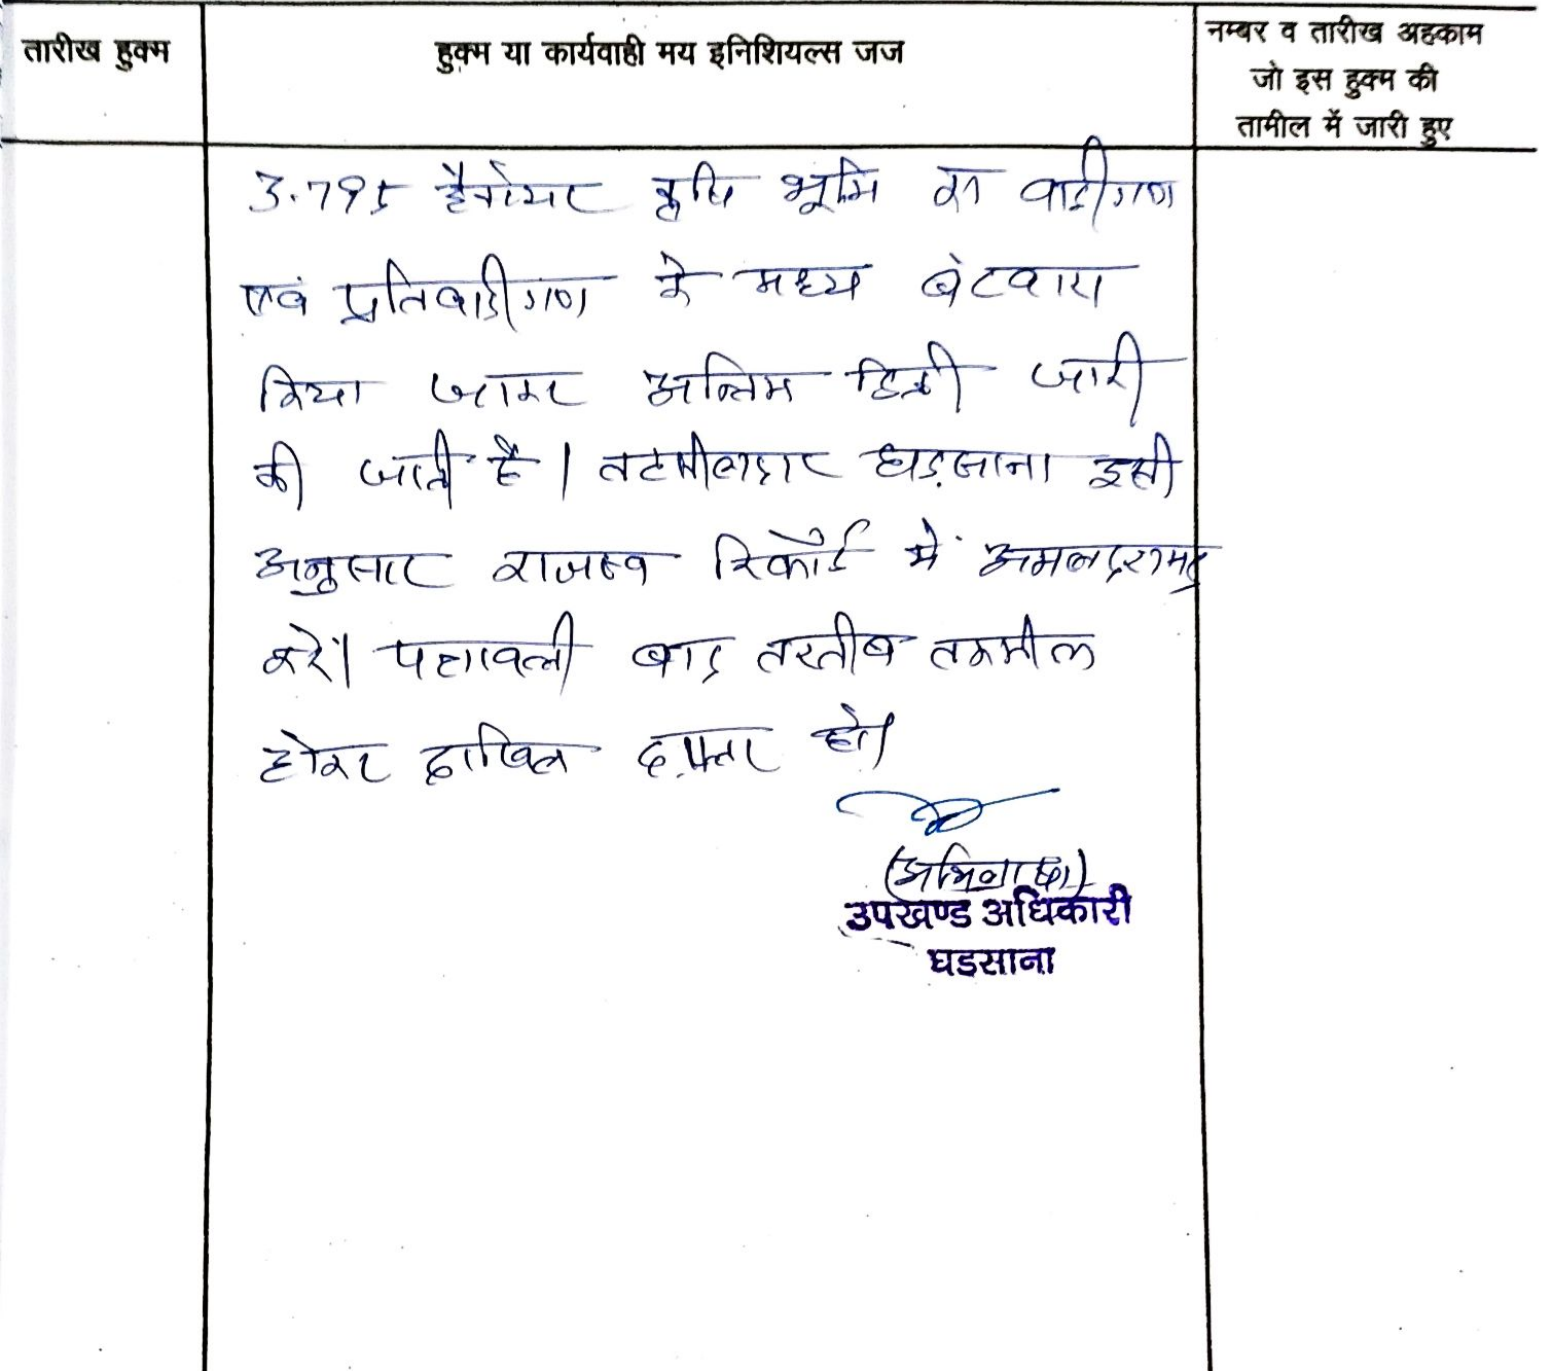 तारीख हुक्म
हुक्म या कार्यवाही मय इनिशियल्स जज
नम्बर व तारीख अहकाम
जो इस हुक्म की
तामील में जारी हुए
3.795 हैक्टेयर कृषि भूमि का वादीगण
एवं प्रतिवादीगण के मध्य बंटवारा
किया जाकर अन्तिम डिक्री जारी
की जाती है। तहसीलदार घड़साना इसी
अनुसार राजस्व रिकॉर्ड में अमलदरामद
करें। पत्रावली बाद तरतीब तकमील
होकर दाखिल दफ्तर हो।
(अभिलाषा)
उपखण्ड अधिकारी
घडसाना